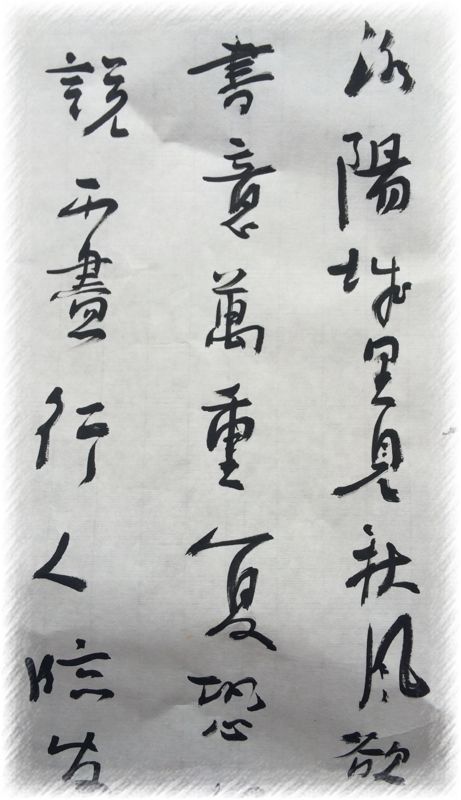 洛陽城里見秋風欲
書意萬重复恐
說不盡行人臨發